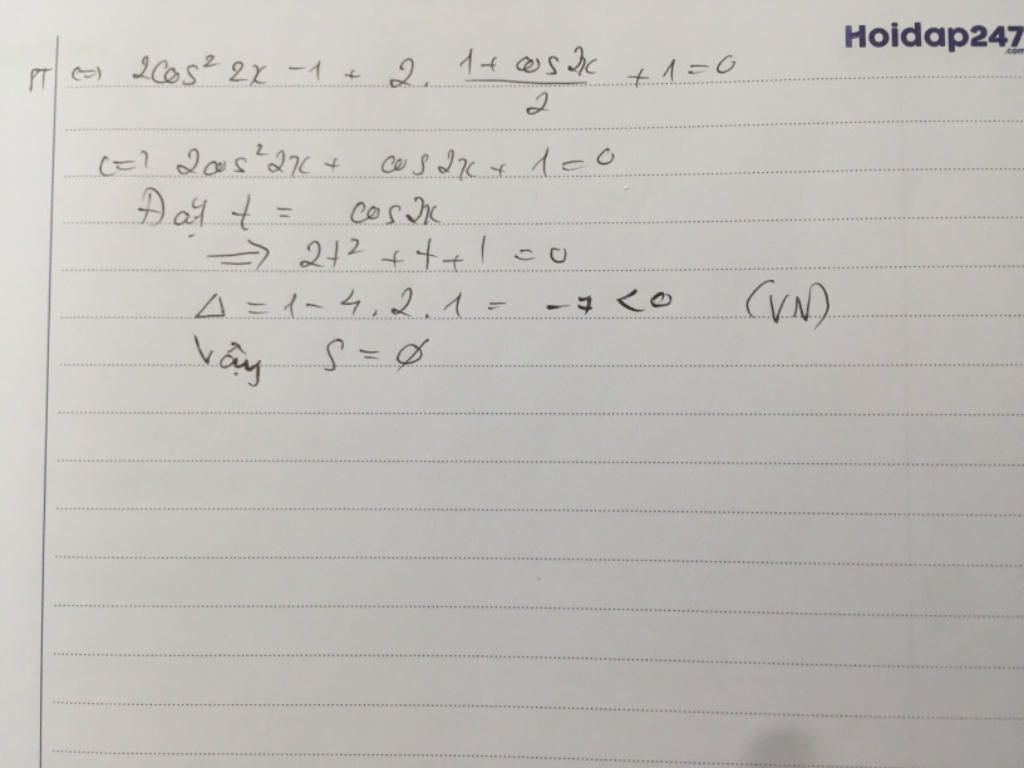 Hoidap247
.com
PT <=> 2cos² 2x - 1 + 2. (1 + cos2x)/2 + 1 = 0
<=> 2cos² 2x + cos 2x + 1 = 0
Đặt t = cos2x
=> 2t² + t + 1 = 0
Δ = 1 - 4.2.1 = -7 < 0 (VN)
Vậy S = ∅